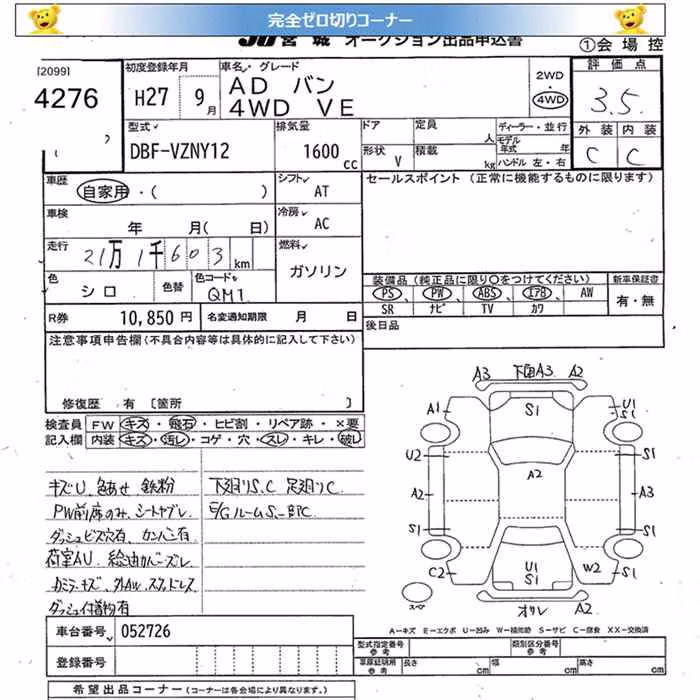 完全ゼロ切りコーナー
JU 宮城 オークション出品申込書 ①会場控
[2099]
4276
初度登録年月
H27 9月
車名・グレード
AD バン
4WD VE
2WD
4WD
評価点
3.5
外装 内装
C C
型式
DBF-VZNY12
排気量
1600 cc
ドア
形状 V
定員 人
積載 kg
ディーラー・並行
モデル年式 年
ハンドル 左・右
車歴
自家用・( )
シフト AT
セールスポイント (正常に機能するものに限ります)
車検
年 月( 日)
冷房 AC
走行
21万1千603km
燃料
ガソリン
色
シロ
色替
色コード
QM1
装備品 (純正品に限り○をつけてください)
PS PW ABS エアB AW
SR ナビ TV カワ
新車保証書
有・無
R券 10,850円
名変通知期限 月 日
後日品
注意事項申告欄(不具合内容等は具体的に記入して下さい)
修復歴 有 [箇所 ]
検査員記入欄
FW キズ・飛石・ヒビ割・リペア跡・×要
内装 キズ・汚レ・コゲ・穴・スレ・キレ・破レ
キズU、色あせ、鉄粉
PW前席のみ、シートヤブレ
ダッシュビス穴有、カンバン有
荷室AU、給油カバーズレ
カミラーキズ、外AW、スタッドレス
ダッシュ付着物有
下廻りS、C 足廻りC
E/GルームS一部C
A3 下回A3 A2
A1 S1 U1 S1
U2 S1
A2 A2 A3
S1 S1
C2 U1 S1 W2 S1
スペア オサレ A2
A-キズ E-エクボ U-凹み W-補修跡 S-サビ C-腐食 XX-交換済
車台番号 052726
登録番号
型式指定番号 参考
類別区分番号 参考
車庫証明用 参考
長さ cm 幅 cm 高さ cm
希望出品コーナー (コーナーは各会場により異なります。)